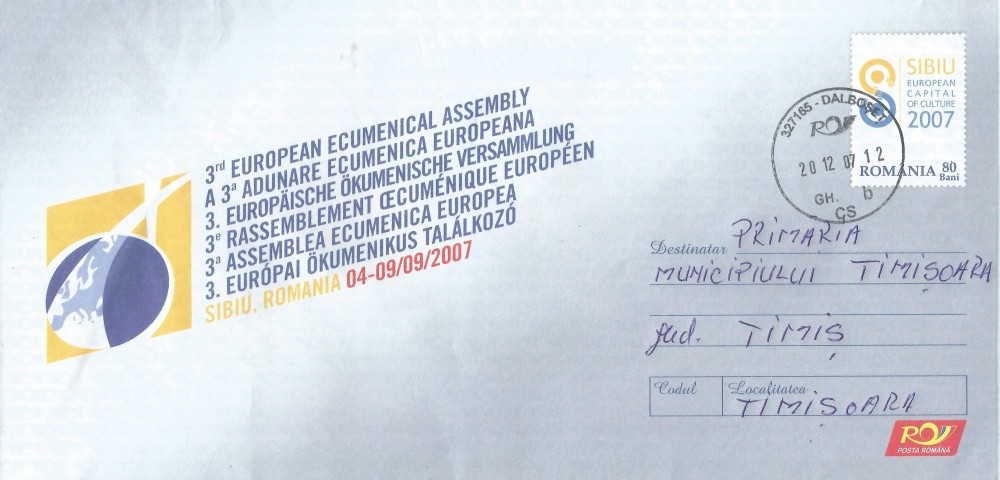 3rd EUROPEAN ECUMENICAL ASSEMBLY
A 3a ADUNARE ECUMENICA EUROPEANA
3. EUROPÄISCHE ÖKUMENISCHE VERSAMMLUNG
3e RASSEMBLEMENT ŒCUMÉNIQUE EUROPÉEN
3a ASSEMBLEA ECUMENICA EUROPEA
3. EURÓPAI ÖKUMENIKUS TALÁLKOZÓ
SIBIU, ROMANIA 04-09/09/2007
SIBIU
EUROPEAN
CAPITAL
OF CULTURE
2007
ROMÂNIA 80
Bani
327165 - DALBOȘEȚ
20 12 07 12
GH. b
CS
Destinatar PRIMARIA
MUNICIPIULUI TIMIȘOARA
jud. TIMIȘ
Codul Localitatea
TIMIȘOARA
POSTA ROMÂNĂ